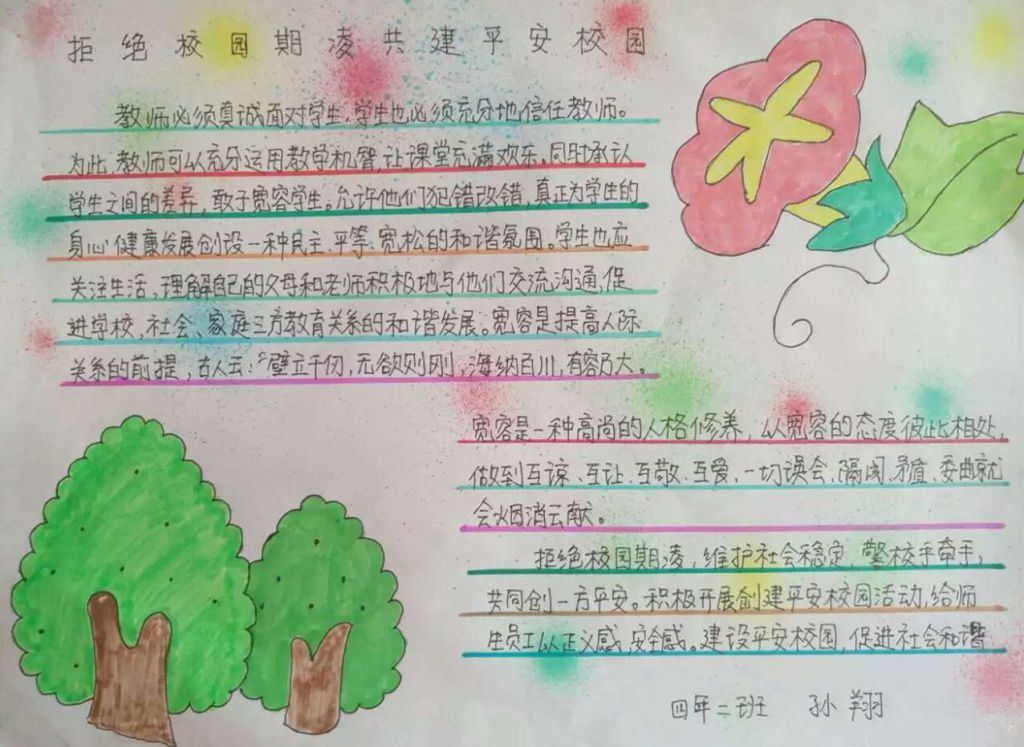 拒绝校园期凌共建平安校园
教师必须真诚面对学生,学生也必须充分地信任教师。
为此,教师可以充分运用教学机智,让课堂充满欢乐。同时承认
学生之间的差异,敢于宽容学生。允许他们犯错改错,真正为学生的
身心健康发展创设一种民主、平等、宽松的和谐氛围。学生也应
关注生活,理解自己的父母和老师积极地与他们交流沟通,促
进学校,社会、家庭三方教育关系的和谐发展。宽容是提高人际
关系的前提,古人云:“壁立千仞,无欲则刚,海纳百川,有容乃大。
宽容是一种高尚的人格修养,从宽容的态度彼此相处,
做到互谅、互让、互敬、互爱、一切误会、隔阂、矛盾、委曲就
会烟消云献。
拒绝校园期凌,维护社会稳定,警校手牵手,
共同创一方平安。积极开展创建平安校园活动,给师
生员工以正义感,安全感。建设平安校园,促进社会和谐
四年二班 孙翔